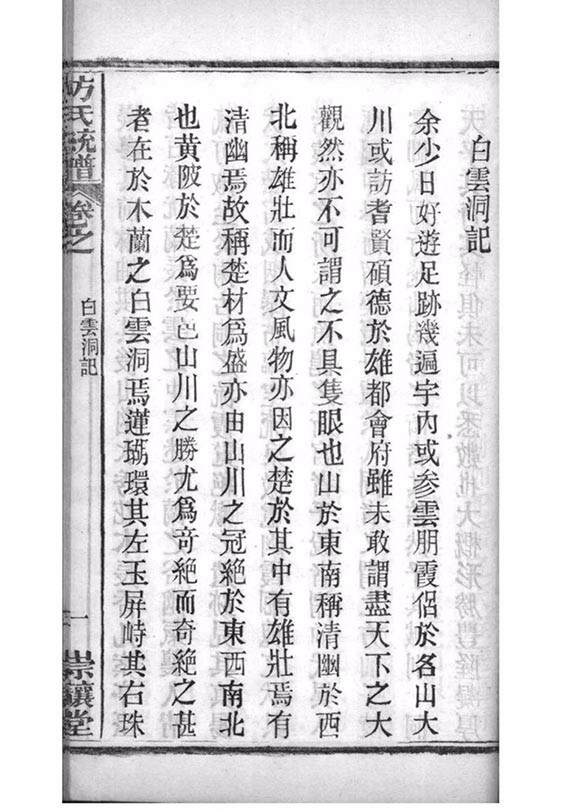 白雲洞記
余少日好遊足跡幾遍宇內或參雲朋霞侶於名山大
川或訪耆賢碩德於雄都會府雖未敢謂盡天下之大
觀然亦不可謂之不具隻眼也山於東南稱清幽於西
北稱雄壯而人文風物亦因之楚於其中有雄壯焉有
清幽焉故稱楚材爲盛亦由山川之冠絕於東西南北
也黃陂於楚爲要邑山川之勝尤爲奇絕而奇絕之甚
者在於木蘭之白雲洞焉蓮瑚環其左玉屏峙其右珠
方氏統譜
卷之
白雲洞記
一
崇讓堂